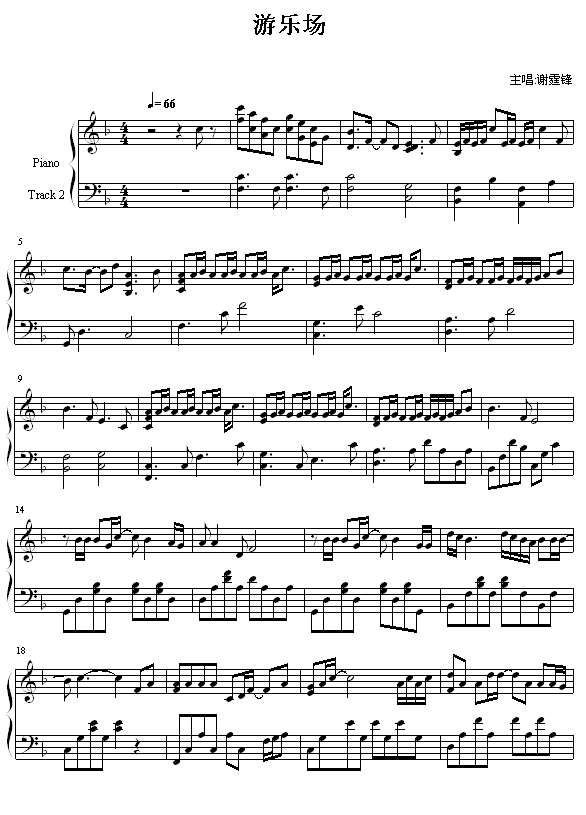 游乐场
主唱:谢霆锋
♩= 66
Piano
Track 2
5
9
14
18